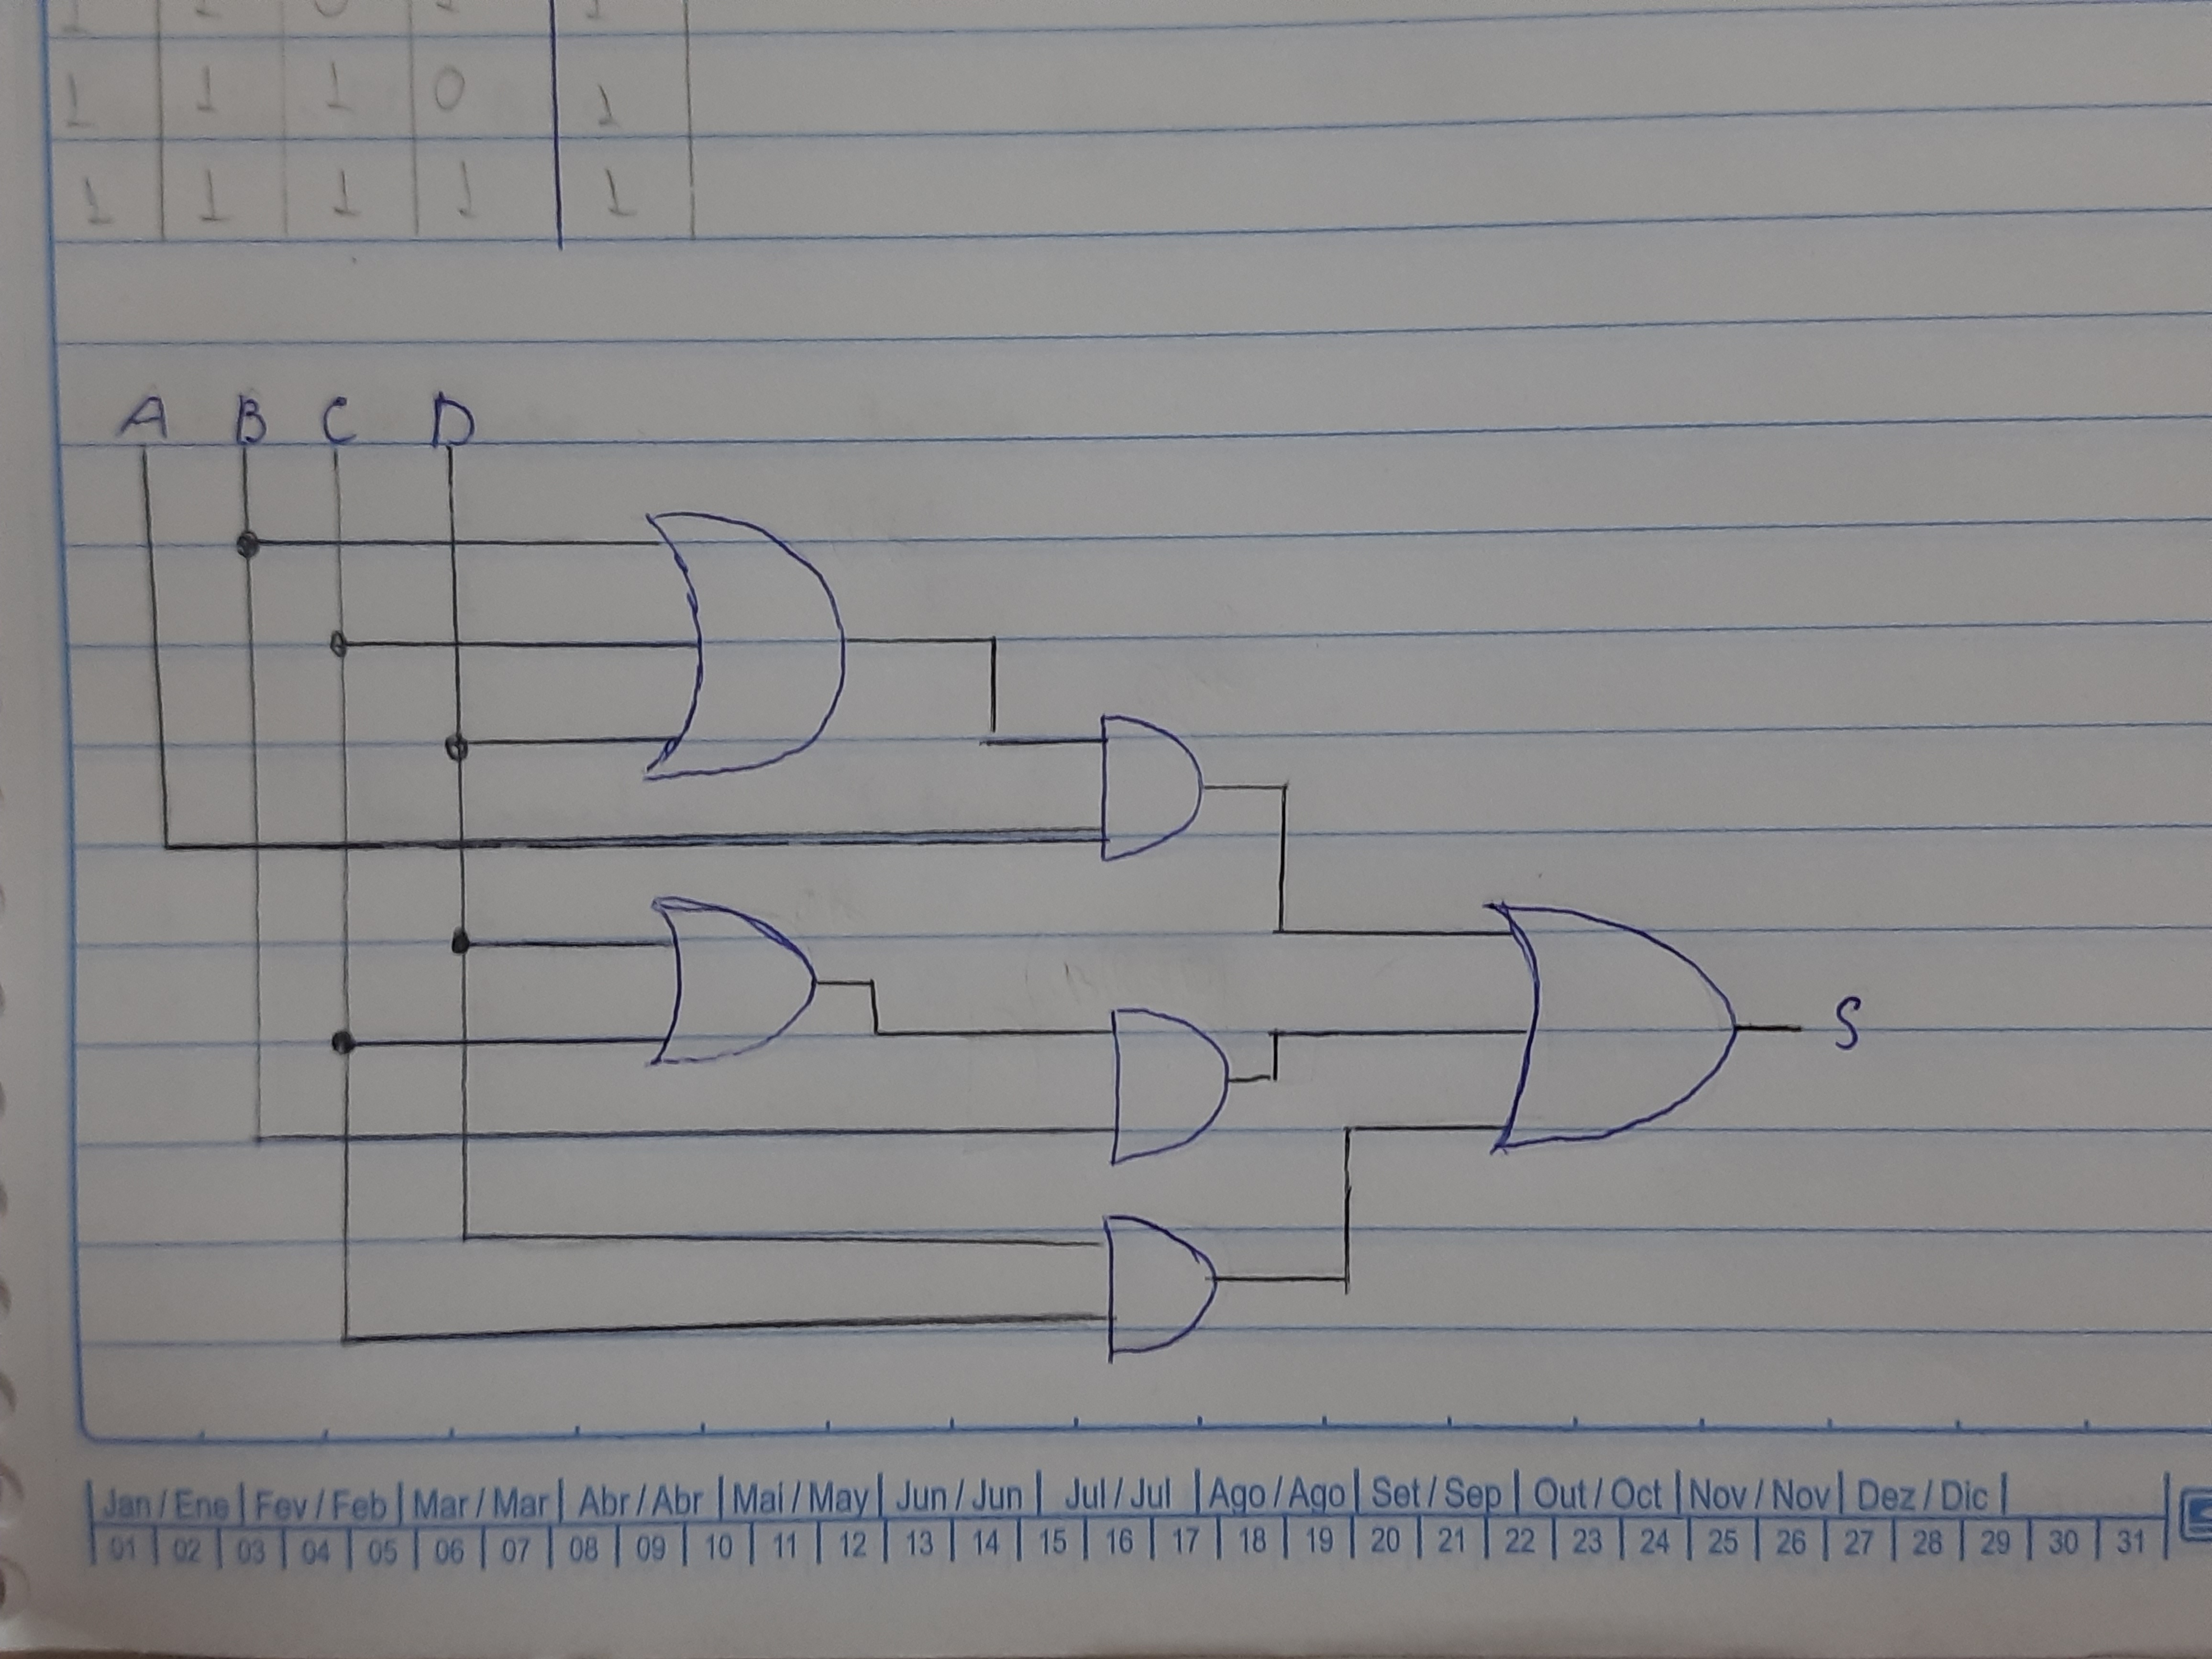 1 1 0 1 1
1 1 1 0 1
1 1 1 1 1
A B C D
S
Jan / Ene Fev / Feb Mar / Mar Abr / Abr Mai / May Jun / Jun Jul / Jul Ago / Ago Set / Sep Out / Oct Nov / Nov Dez / Dic
01 02 03 04 05 06 07 08 09 10 11 12 13 14 15 16 17 18 19 20 21 22 23 24 25 26 27 28 29 30 31